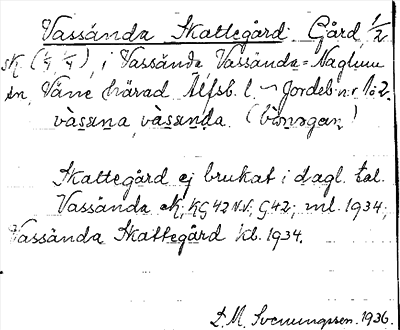 Vassända Skattegård. Gård, 1/2
sk. (1/4, 1/4), i Vassända Vassända-Naglum
sn, Väne härad Älfsb. l. – Jordeb. nr 1:2.
vàsɛna, vàsɛnda. (
Skattegård ej brukat i dagl. tal.
Vassända ek, KG 42 N.V., G 42; ml. 1934;
Vassända Skattegård kb. 1934.
D. M. Svenungsson. 1936.